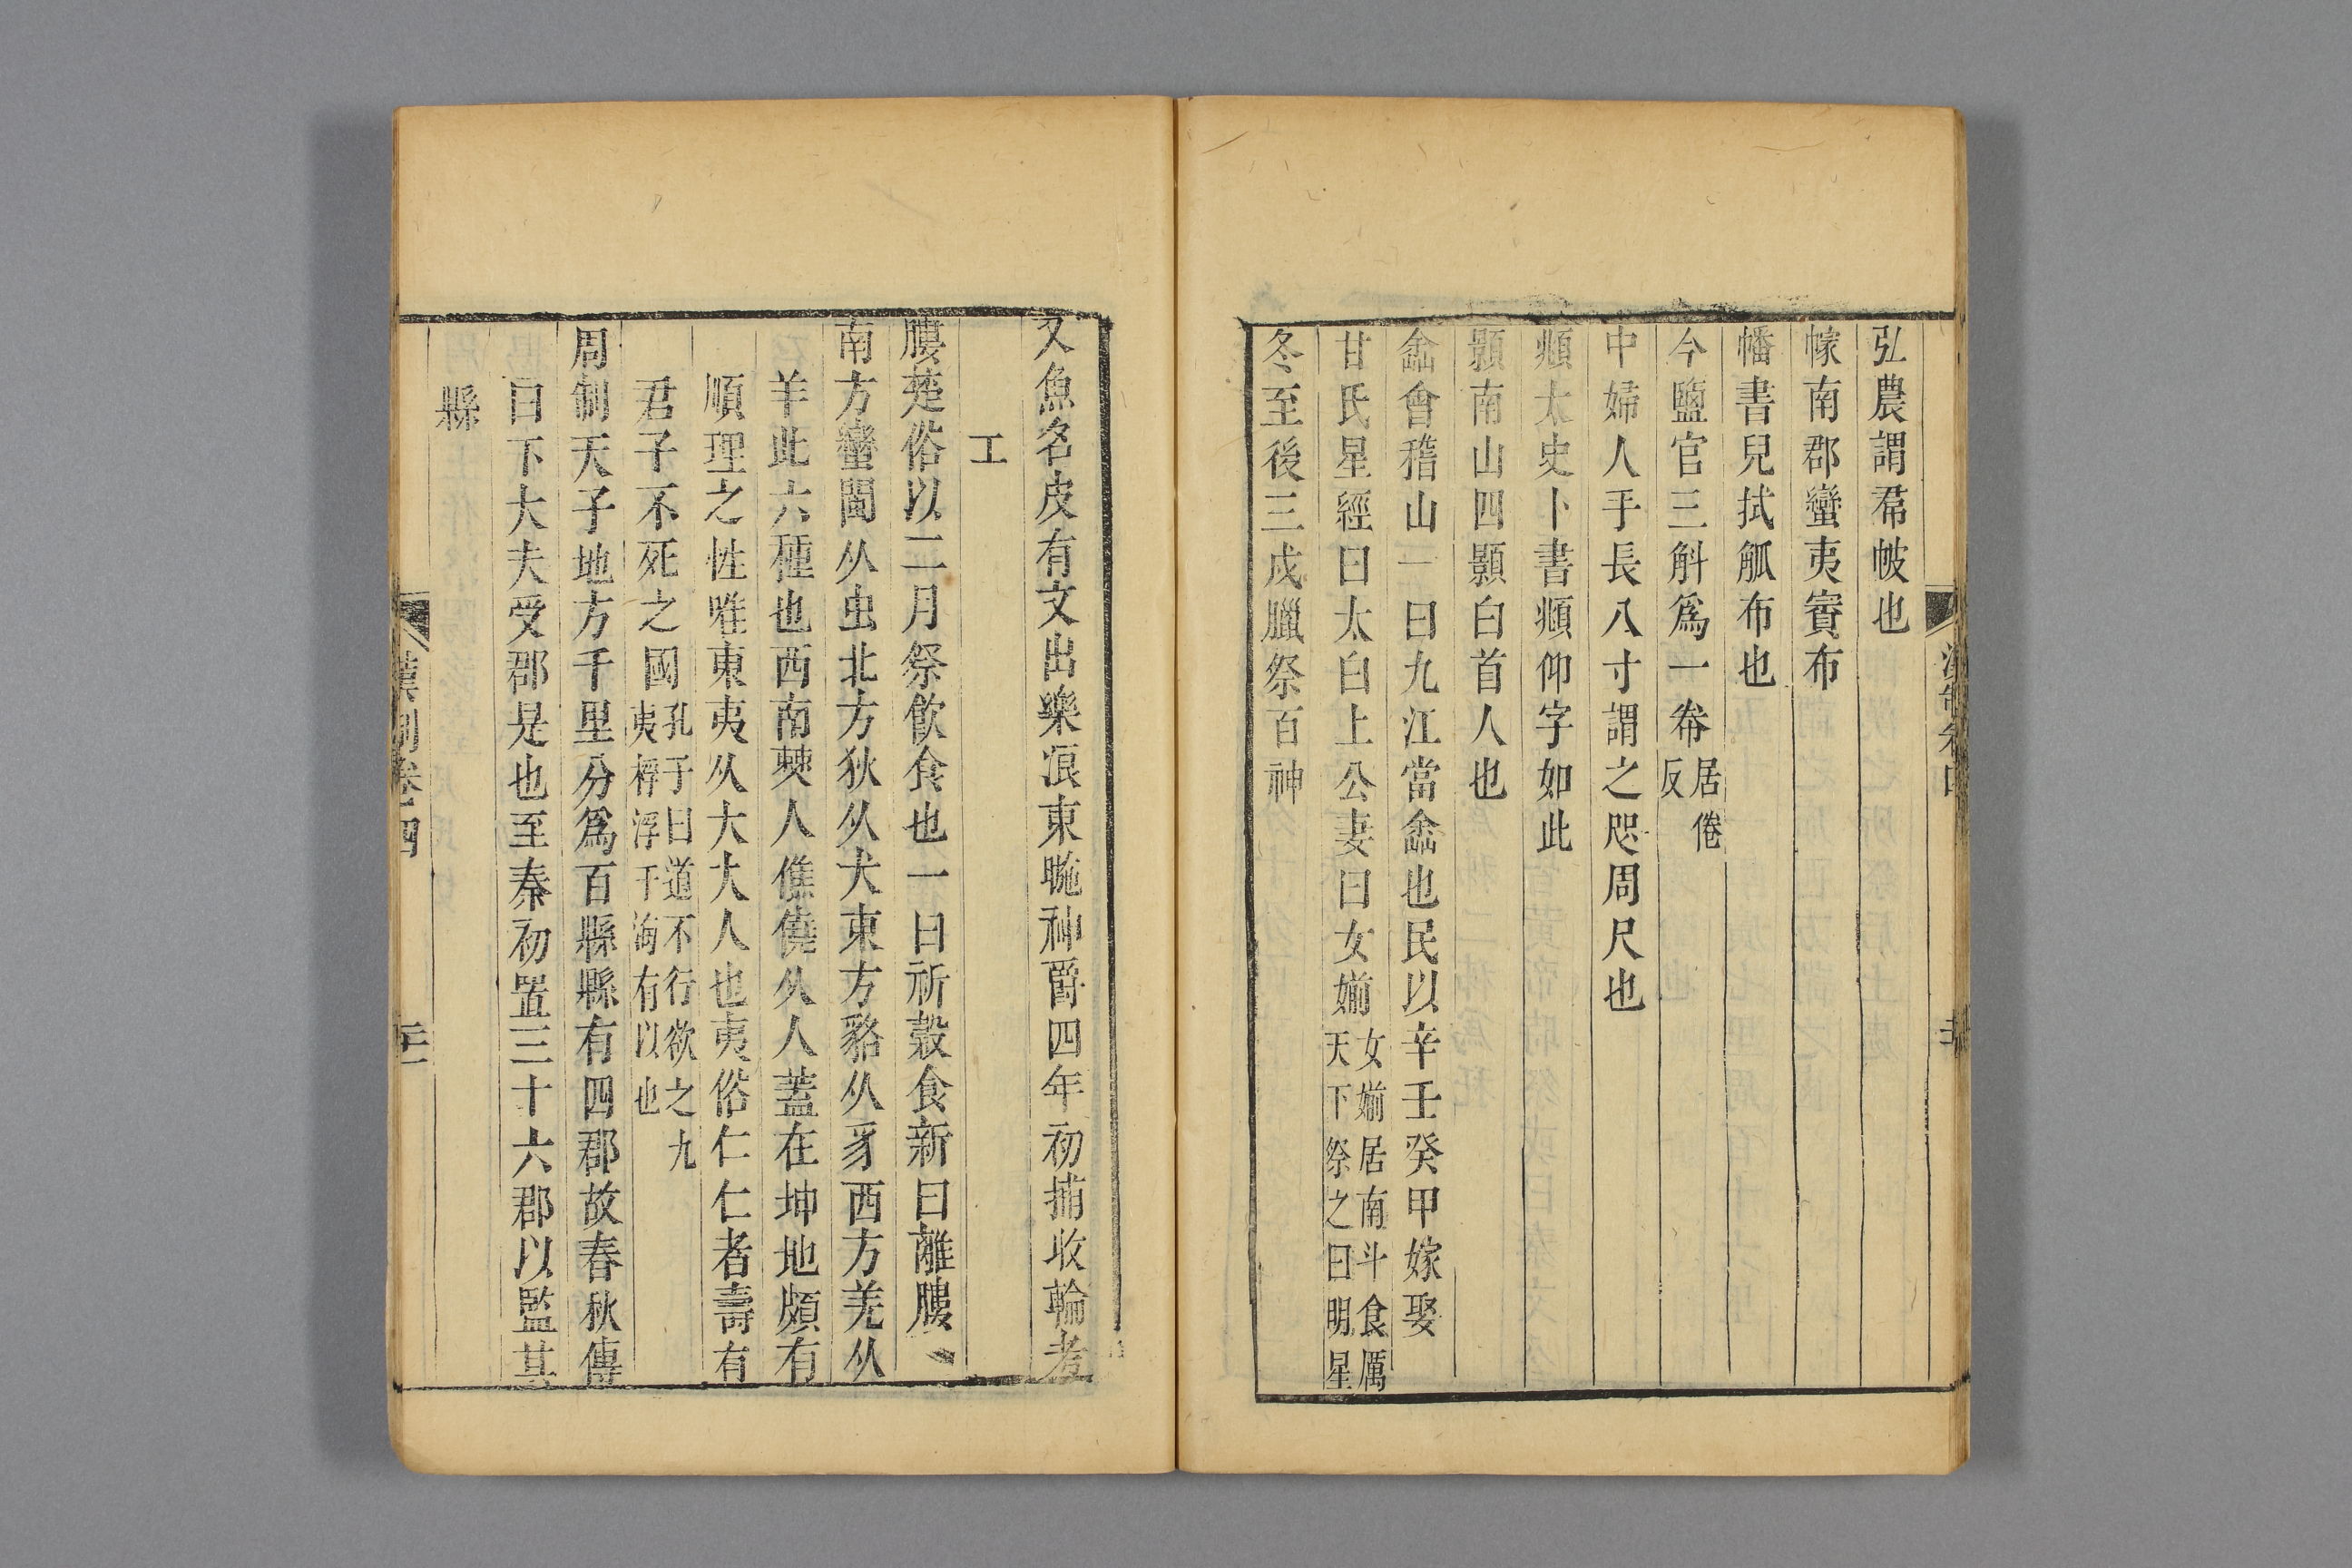 弘農謂帬帔也
幏南郡蠻夷賨布
幡書兒拭觚布也
今鹽官三斛爲一㢧居倦反
中婦人手長八寸謂之咫周尺也
頫太史卜書頫仰字如此
顥南山四顥白首人也
嵞會稽山一曰九江當嵞也民以辛壬癸甲嫁娶
甘氏星經曰太白上公妻曰女媊女媊居南斗食厲天下祭之曰明星
冬至後三戌臘祭百神
又魚名皮有文出樂浪東暆神爵四年初捕收輸考
工
膢楚俗以二月祭飲食也一曰祈穀食新曰離膢
南方蠻閩从虫北方狄从犬東方貉从豸西方羌从
羊此六種也西南僰人僬僥从人蓋在坤地頗有
順理之性唯東夷从大大人也夷俗仁仁者壽有
君子不死之國孔子曰道不行欲之九夷桴浮于海有以也
周制天子地方千里分爲百縣縣有四郡故春秋傳
曰下大夫受郡是也至秦初置三十六郡以監其
縣
漢制卷四